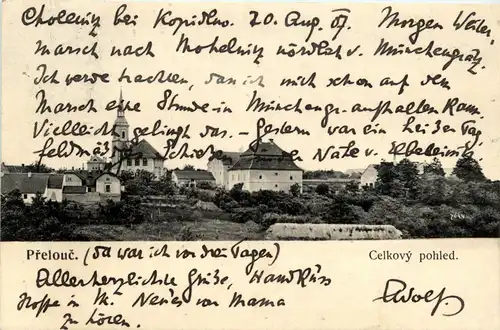 Cholenitz bei Kopidlno. 20. Aug. 07. Morgen Weiter
marsch nach Mohelnitz nördlich v. Münchengrätz.
Ich werde trachten, dass ich mich schon auf dem
Marsch eine Stunde in Münchengr. aufhalten kann.
Vielleicht gelingt das. – Gestern war ein heißer Tag,
feldmäß schießen Nähe v. Elbeteinitz.
Přelouč. (da war ich vor drei Tagen)
Celkový pohled.
Allerherzlichste Grüße, Handküss
Hoffe in M. Neues von Mama
zu hören.
Adolf